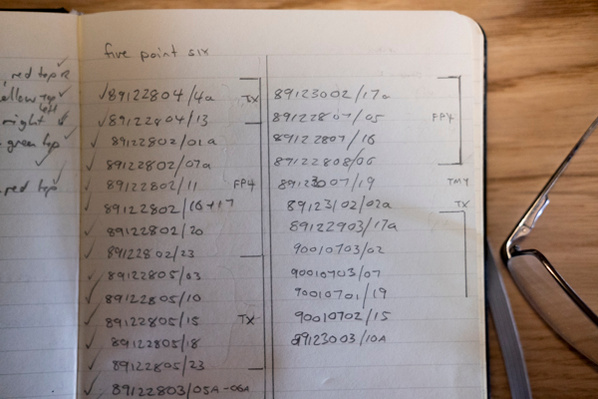 red top R ✓
ellow Top ✓
left
right ✓
green top ✓
✓
red top ✓
five point six
✓ 89122804/4a
TX
✓ 89122804/13
✓ 89122802/01a
✓ 89122802/07a
✓ 89122802/11 FP4
✓ 89122802/16+17
✓ 89122802/20
✓ 89122802/23
✓ 89122805/03
✓ 89122805/10
✓ 89122805/15 TX
✓ 89122805/18
✓ 89122805/23
✓ 89122803/05A-06A
89123002/17a
89122807/05 FP4
89122807/16
89122808/06
89123007/19 TMY
89123102/02a TX
89122903/17a
90010703/02
90010703/07
90010701/19
90010702/15
89123003/10A